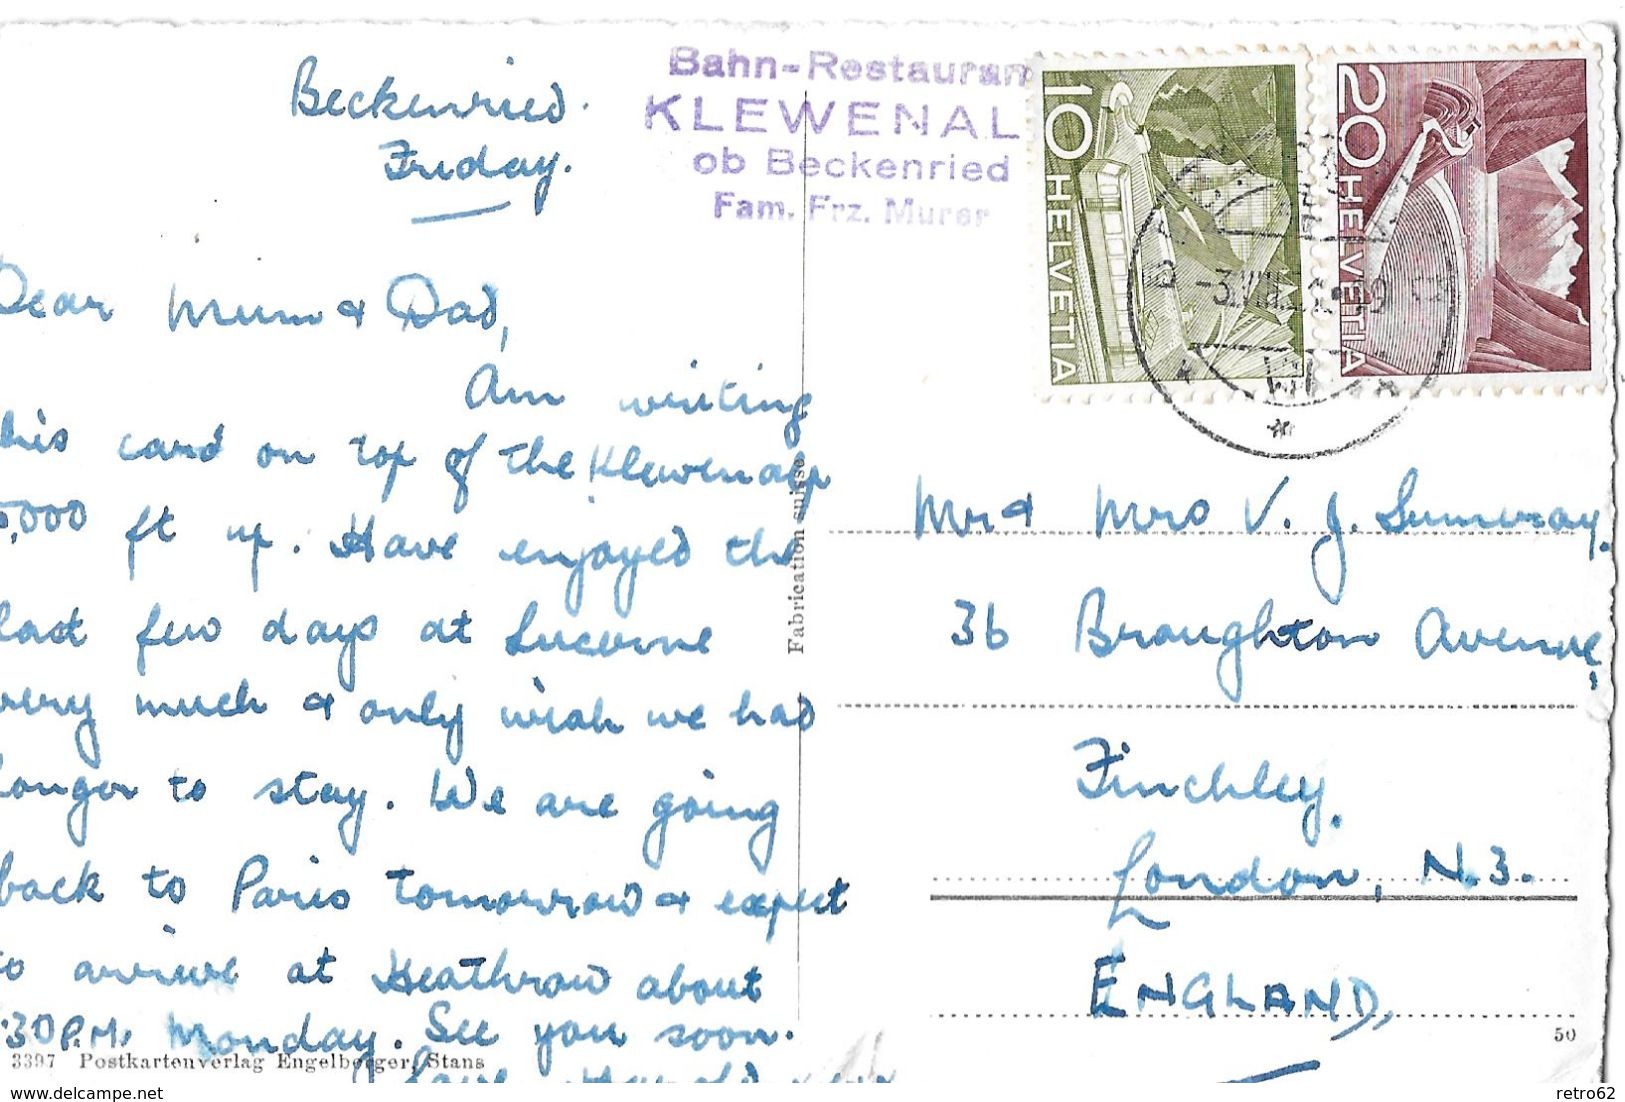 Beckenried.
Friday.
Dear Mum & Dad,
Am writing
this card on top of the Klewenalp
,000 ft up. Have enjoyed the
last few days at Lucerne
very much & only wish we had
longer to stay. We are going
back to Paris tomorrow & expect
to arrive at Heathrow about
:30 P.M. Monday. See you soon.
Love
3397 Postkartenverlag Engelberger, Stans
Fabrication suisse
Bahn-Restauran
KLEWENAL
ob Beckenried
Fam. Frz. Murer
10 HELVETIA
20 HELVETIA
-3.VIII
Mr & Mrs V. J. Sumeray.
36 Braughton Avenue,
Finchley.
London, N.3.
ENGLAND,
50
www.delcampe.net
retro62